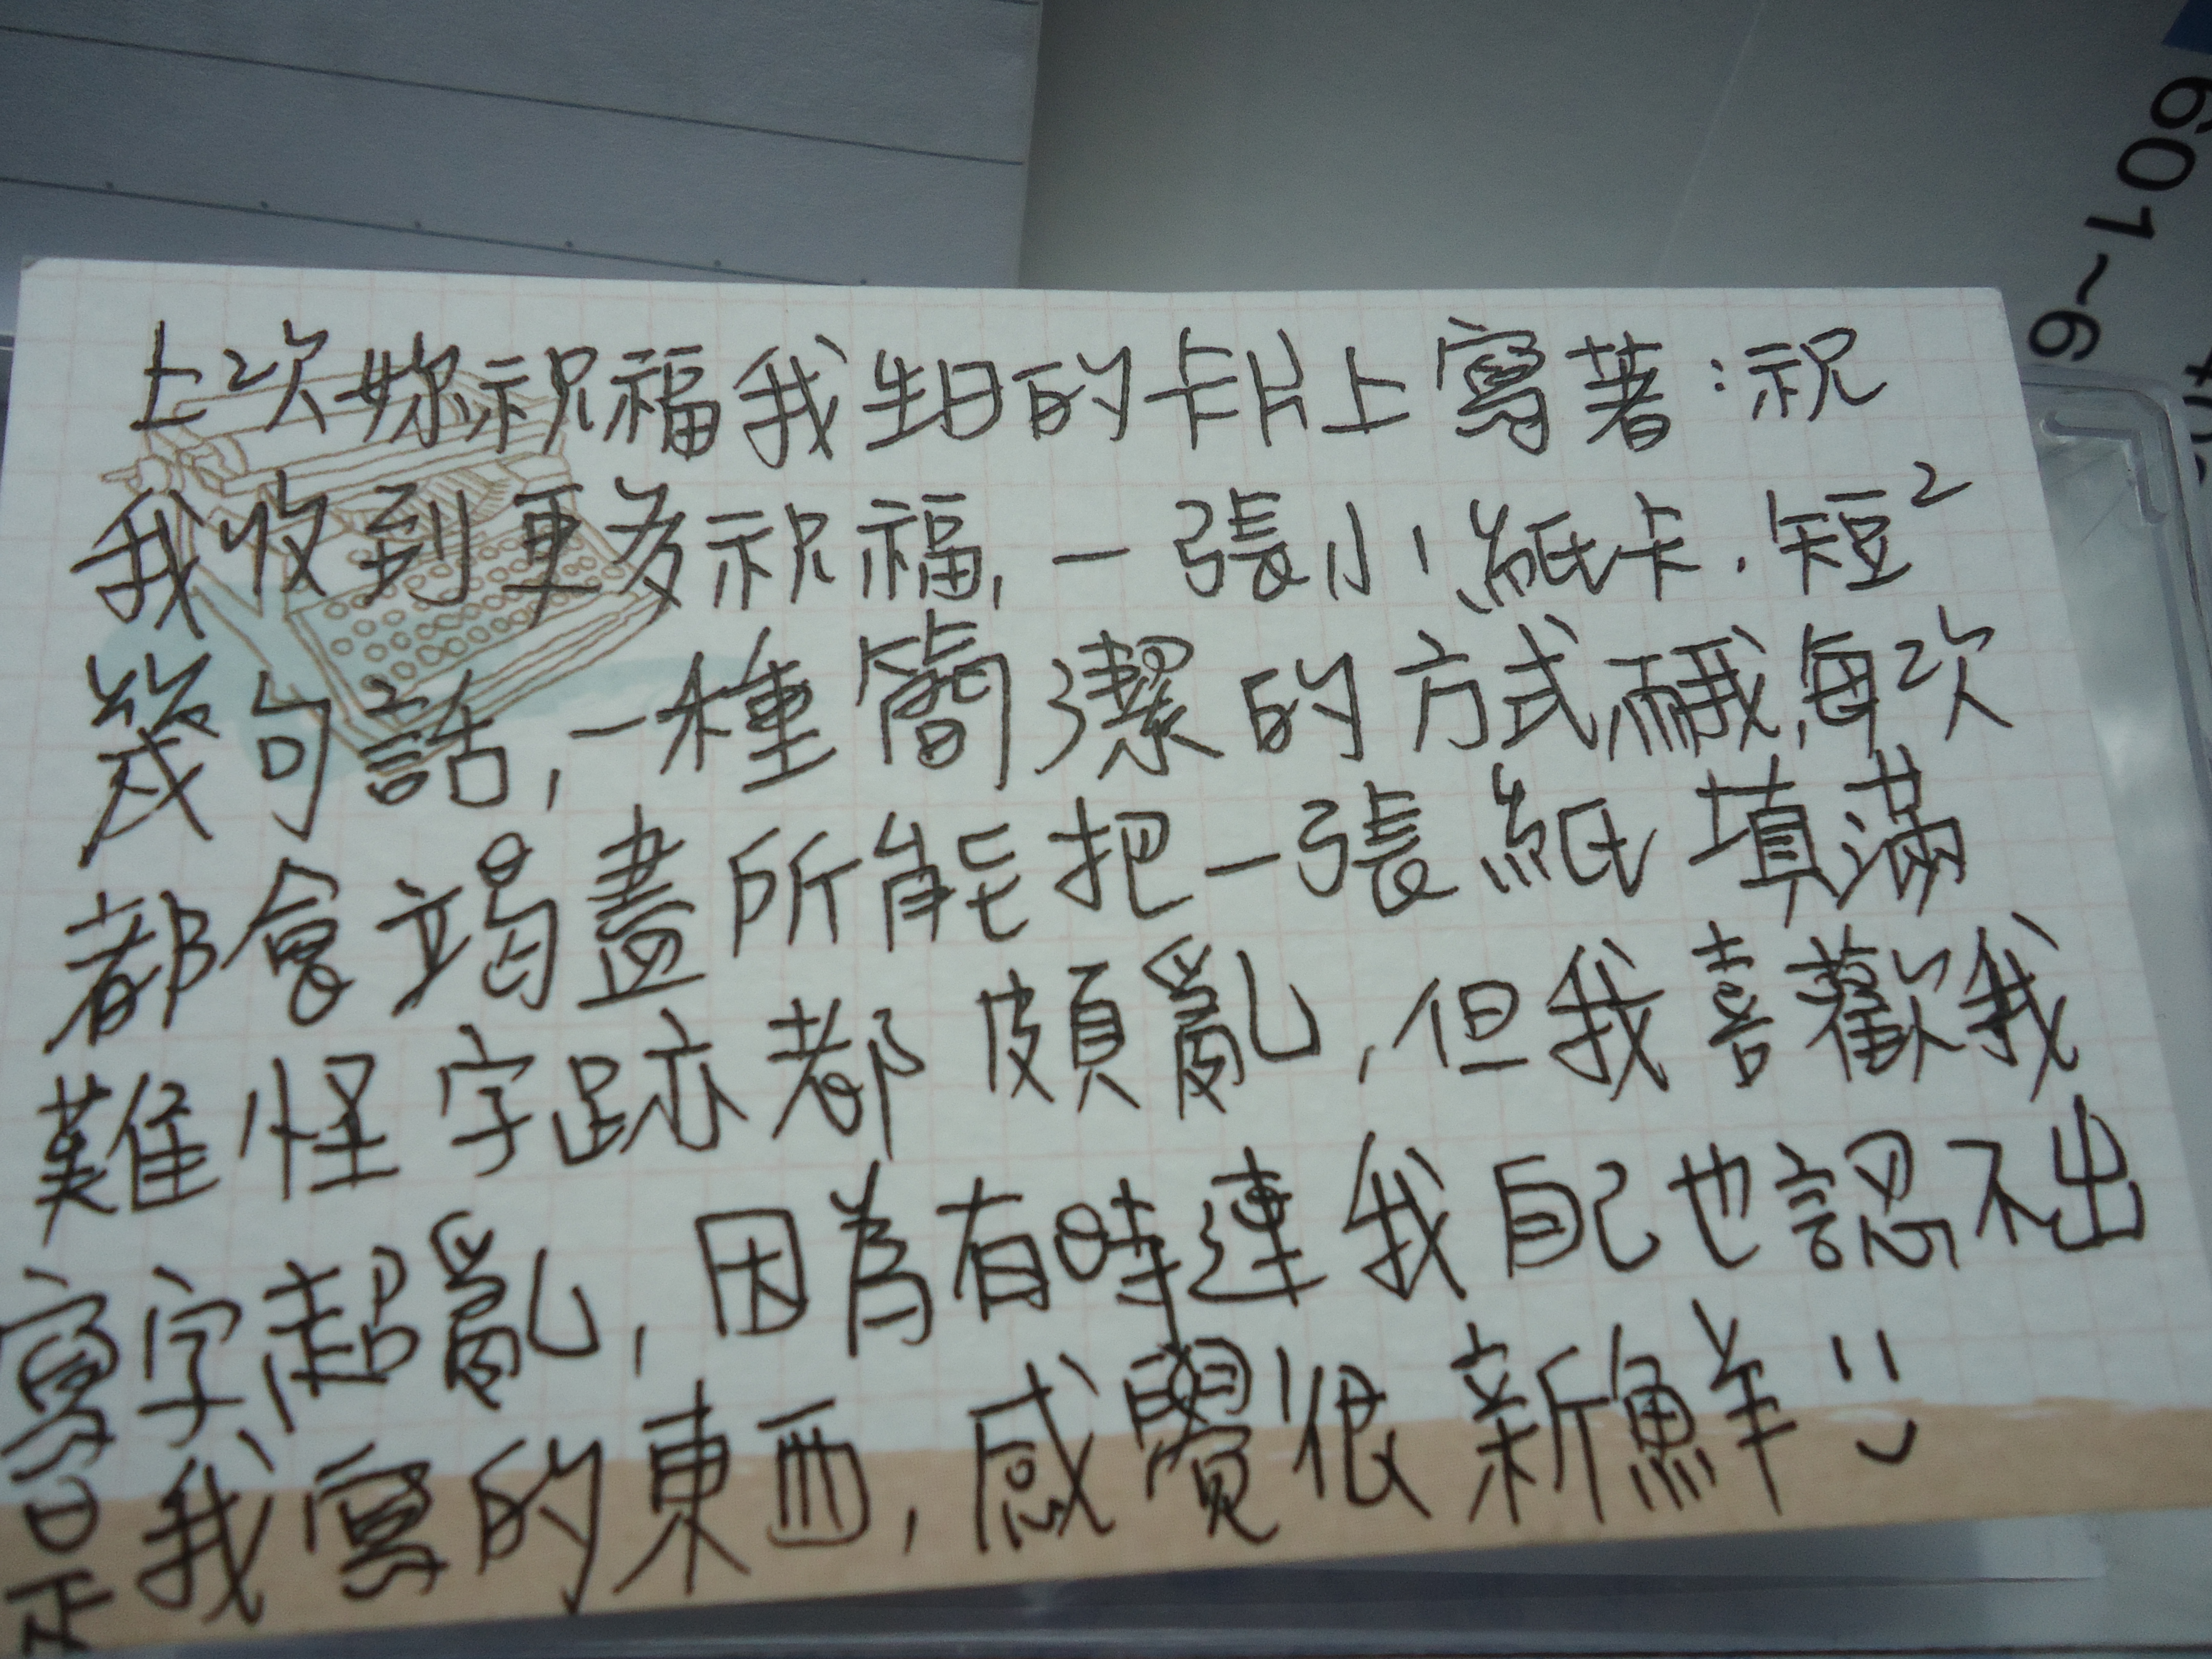 上次妳祝福我生日的卡片上寫著:祝
我收到更多祝福,一張小紙卡.短²
幾句話,一種簡潔的方式而我每次
都會竭盡所能把一張紙填滿
難怪字跡都頗亂,但我喜歡我
寫字超亂,因為有時連我自己也認不出
是我寫的東西,感覺很新鮮
601~6